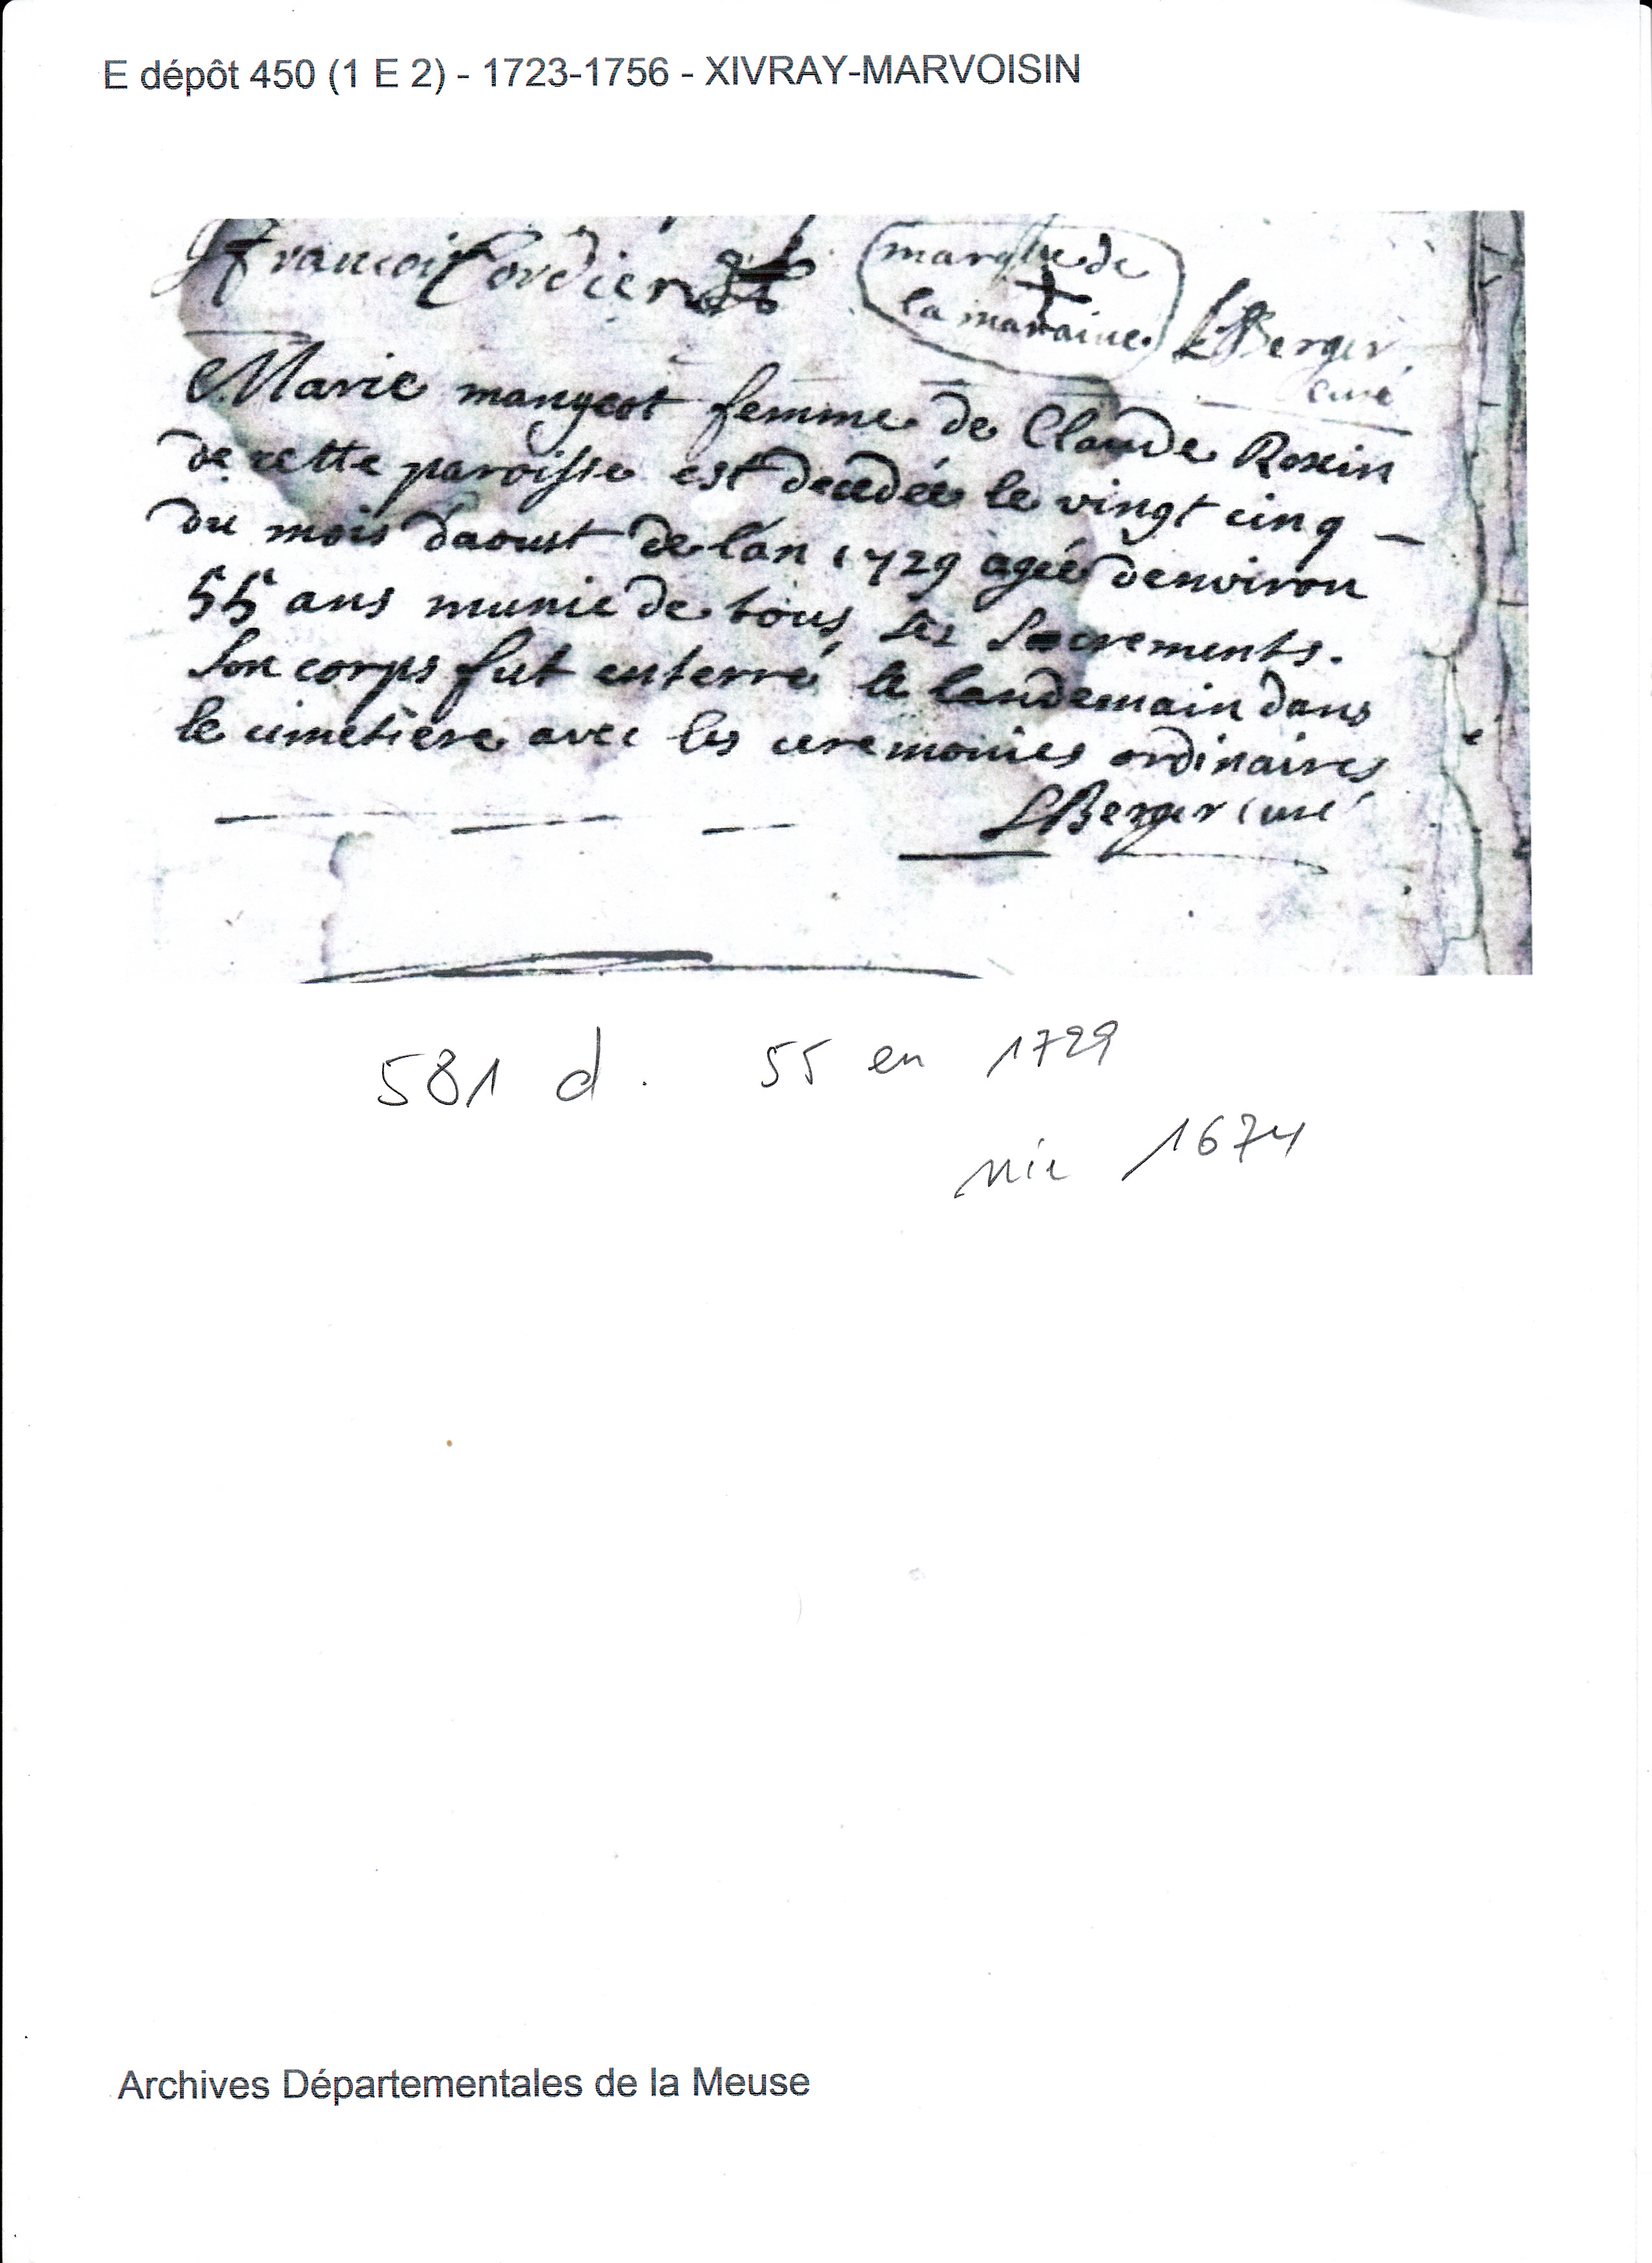 E dépôt 450 (1 E 2) - 1723-1756 - XIVRAY-MARVOISIN
francoi Cordier
marque de
la maraine.
LBerger
curé
Marie mangeot femme de Claude Roxin
de cette paroisse est decedée le vingt cinq -
du mois daoust de lan 1729 agée denviron
55 ans munie de tous les Sacrements.
Son corps fut enterré le landemain dans
le cimetiere avec les ceremonies ordinaires
LBerger curé
581 d. 55 en 1729
née 1674
Archives Départementales de la Meuse